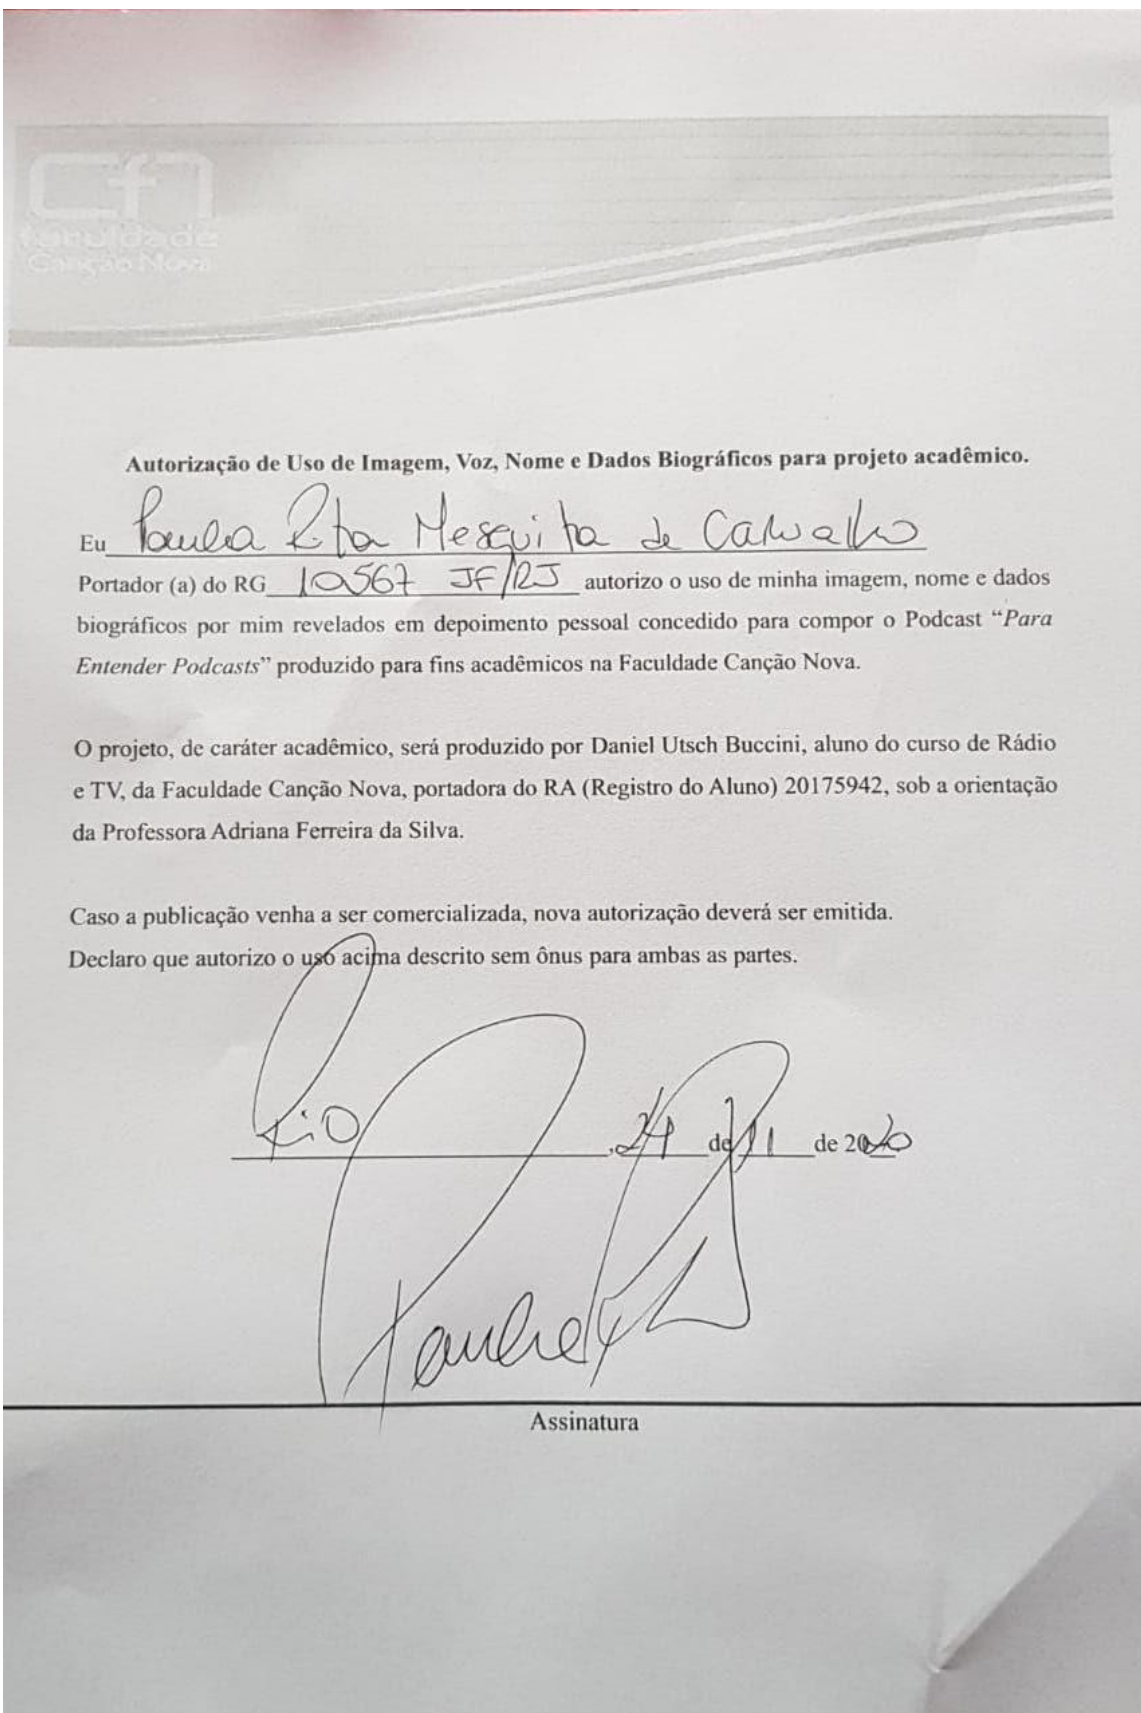 cfn
faculdade
Canção Nova
Autorização de Uso de Imagem, Voz, Nome e Dados Biográficos para projeto acadêmico.
Eu Paula Rita Mesquita de Carvalho
Portador (a) do RG 10567 JF/RJ autorizo o uso de minha imagem, nome e dados
biográficos por mim revelados em depoimento pessoal concedido para compor o Podcast “Para
Entender Podcasts” produzido para fins acadêmicos na Faculdade Canção Nova.
O projeto, de caráter acadêmico, será produzido por Daniel Utsch Buccini, aluno do curso de Rádio
e TV, da Faculdade Canção Nova, portadora do RA (Registro do Aluno) 20175942, sob a orientação
da Professora Adriana Ferreira da Silva.
Caso a publicação venha a ser comercializada, nova autorização deverá ser emitida.
Declaro que autorizo o uso acima descrito sem ônus para ambas as partes.
Rio, 24 de 11 de 2020
Assinatura